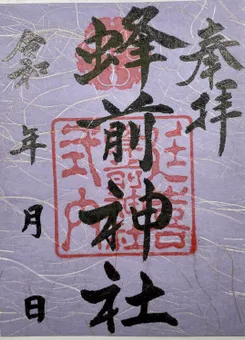 奉拝
蜂前神社
令和
年
月
日
延喜
式内